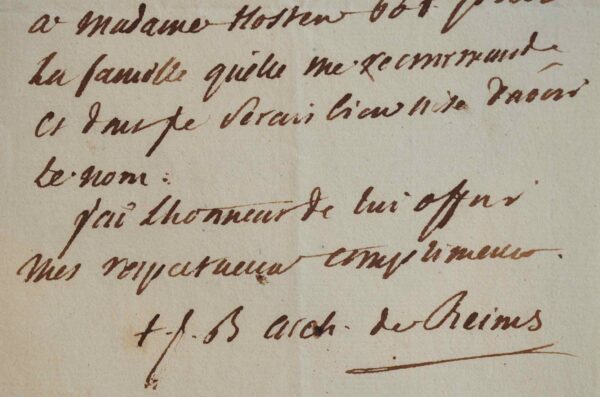 a Madame Hosten 60# pour
La famille qu'elle me recommande
et dont je serais bien aise d'avoir
le nom.
j'ai L'honneur de lui offrir
mes respectueux compliments.
+ j. B arch. de Reims